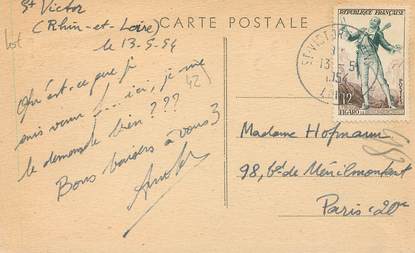 St Victor
(Rhin-et-Loire)
le 13.5.54
CARTE POSTALE
Qu'est-ce que je
suis venu f... ici, je me
le demande bien ???
Bons baisers à vous 3
Arnold
42)
lot
RÉPUBLIQUE FRANÇAISE
12F
FIGARO
ST VICTOR
13-5
1954
Madame Hofmann
98, bd de Ménilmontant
Paris-20e